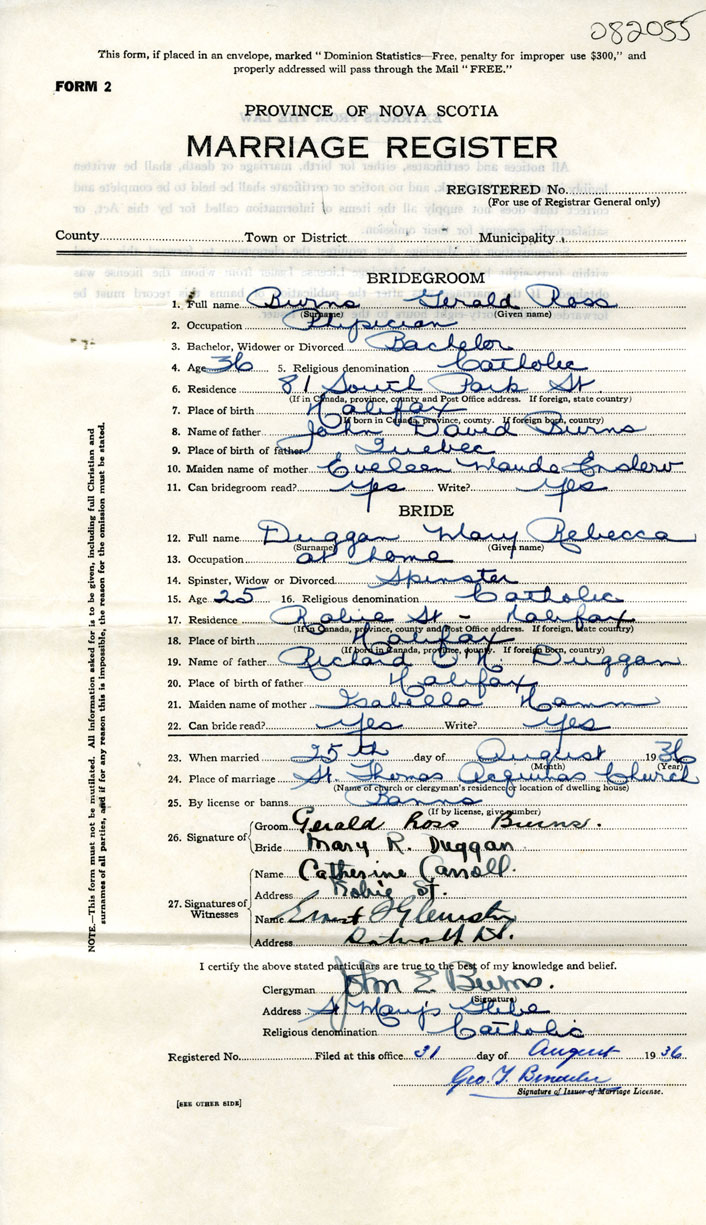 082055
This form, if placed in an envelope, marked "Dominion Statistics—Free, penalty for improper use $300," and
properly addressed will pass through the Mail "FREE."
FORM 2
PROVINCE OF NOVA SCOTIA
MARRIAGE REGISTER
REGISTERED No.
(For use of Registrar General only)
County Town or District Municipality
BRIDEGROOM
1. Full name Burns Gerald Ross
(Surname) (Given name)
2. Occupation Physician
3. Bachelor, Widower or Divorced Bachelor
4. Age 36 5. Religious denomination Catholic
6. Residence 81 South Park St.
(If in Canada, province, county and Post Office address. If foreign, state country)
7. Place of birth Halifax
(If born in Canada, province, county. If foreign born, country)
8. Name of father John David Burns
9. Place of birth of father Quebec
10. Maiden name of mother Eveleen Maude
11. Can bridegroom read? yes Write? yes
BRIDE
12. Full name Duggan Mary Rebecca
(Surname) (Given name)
13. Occupation at home
14. Spinster, Widow or Divorced Spinster
15. Age 25 16. Religious denomination Catholic
17. Residence Robie St - Halifax
(If in Canada, province, county and Post Office address. If foreign, state country)
18. Place of birth Halifax
(If born in Canada, province, county. If foreign born, country)
19. Name of father Richard Duggan
20. Place of birth of father Halifax
21. Maiden name of mother Isabella Hamm
22. Can bride read? yes Write? yes
23. When married 25th day of August 1936
(Month) (Year)
24. Place of marriage St. Thomas Aquinas Church
(Name of church or clergyman's residence or location of dwelling house)
25. By license or banns Banns
(If by license, give number)
26. Signature of
Groom Gerald Ross Burns.
Bride Mary R. Duggan
27. Signatures of Witnesses
Name Catherine Carroll.
Address Robie St.
Name Ernest
Address
I certify the above stated particulars are true to the best of my knowledge and belief.
Clergyman John E Burns.
(Signature)
Address St Mary's Glebe
Religious denomination Catholic
Registered No. Filed at this office 31 day of August 1936
Geo. T.
Signature of Issuer of Marriage License.
[SEE OTHER SIDE]
NOTE.—This form must not be mutilated. All information asked for is to be given, including full Christian and
surnames of all parties, and if for any reason this is impossible, the reason for the omission must be stated.